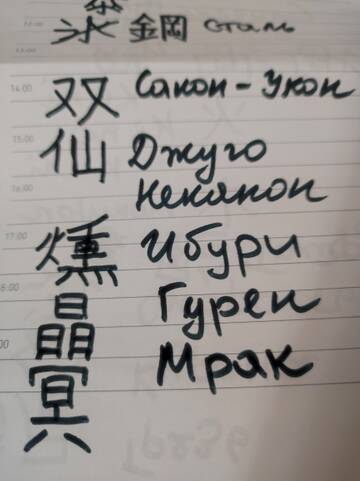 鋼 сталь
14:00 双 Сакон - Укон
15:00 仙 Джуго
16:00 Некянон
17:00 燻 Ибури
8:00 晶 Гурен
00 冥 Мрак